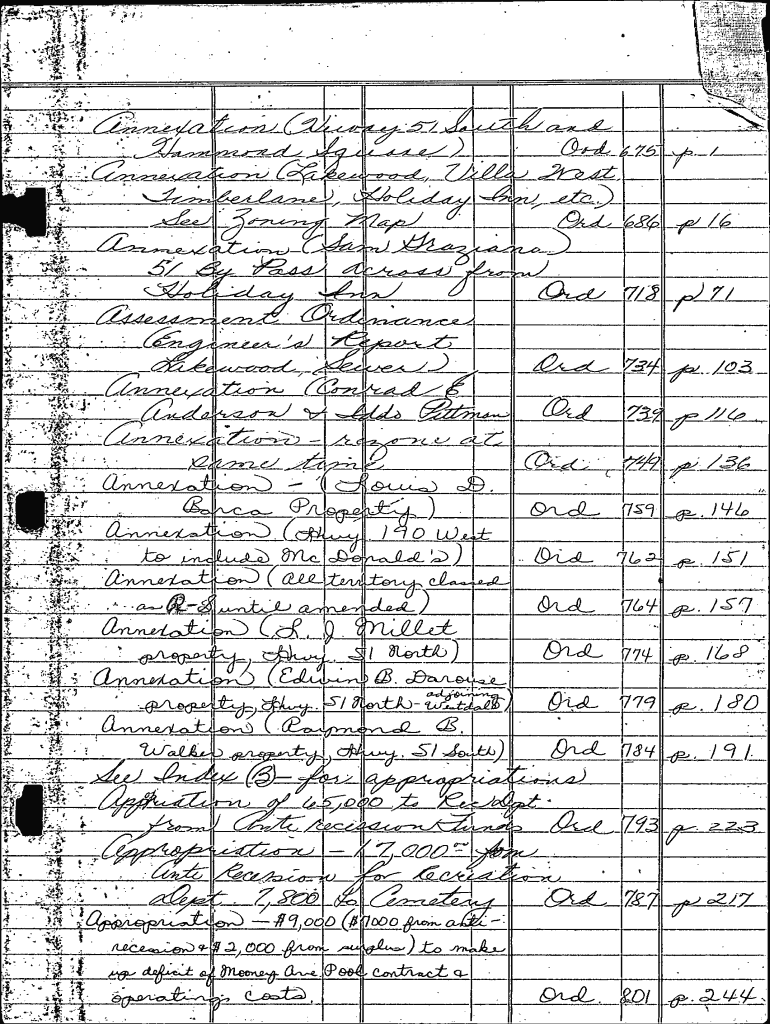 Annexation (Hiway 51 South and
Hammond Square) Ord 675 p 1
Annexation (Lakewood, Villa West,
Timberlane, Holiday Inn, etc.)
See Zoning Map Ord 686 p 16
Annexation (Sam Graziano)
51 By Pass across from
Holiday Inn Ord 718 p 71
Assessment Ordinance
(Engineer's Report,
Lakewood, Sewer) Ord 734 p. 103
Annexation (Conrad E
Anderson & Iddo Pittman Ord 739 p 116
Annexation - rezone at
same time Ord 749 p. 136
Annexation - (Louis D.
Barca Property) Ord 759 p. 146
Annexation (Hwy. 190 West
to include Mc Donald's) Ord 762 p. 151
Annexation (all territory classed
as R-S until amended) Ord 764 p. 157
Annexation (L. J Millet
property, Hwy. 51 North) Ord 774 p. 168
Annexation (Edwin B. Darouse
property, Hwy. 51 North - adjoining Westdale) Ord 779 p. 180
Annexation (Raymond B.
Walker property, Hwy. 51 South) Ord 784 p. 191
See Index (B) - for appropriations
of 65,000 to Rec Dpt.
from Anti recession Funds Ord 793 p. 223
Appropriation - 17,000 from
Anti Recession for Recreation
Dept. 7,800 to Cemetery Ord 787 p 217
Appropriation - $9,000 ($7000 from anti-
recession & $2,000 from surplus) to make
up deficit of Mooney Ave Pool contract &
operating costs. Ord. 801 p. 244